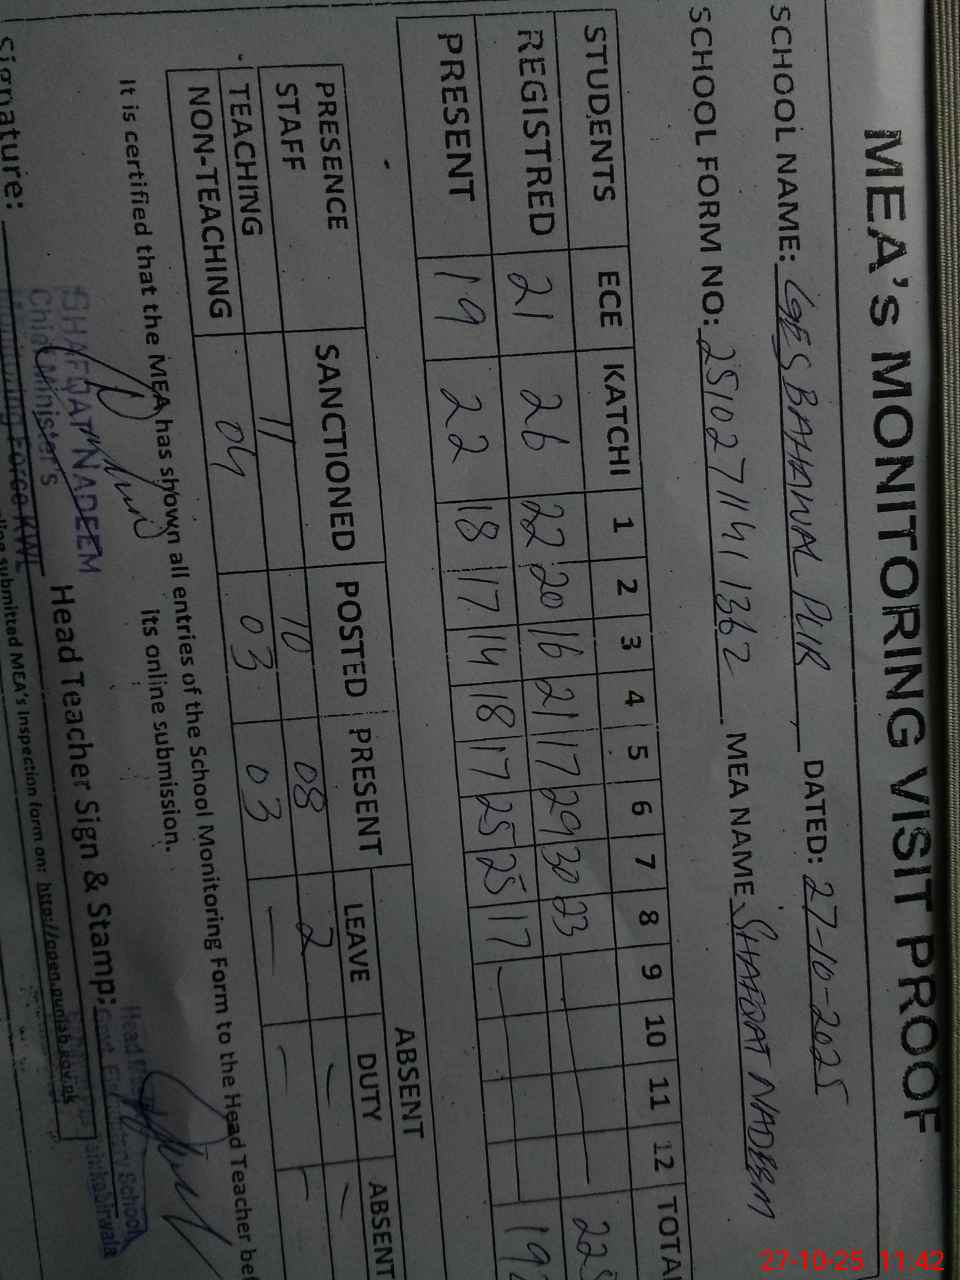 MEA's MONITORING VISIT PROOF
SCHOOL NAME: GES BAHAWAL PUR DATED: 27-10-2025
SCHOOL FORM NO: 2510271141 1362 MEA NAME SHAFQAT NADEEM
STUDENTS ECE KATCHI 1 2 3 4 5 6 7 8 9 10 11 12 TOTAL
REGISTRED 21 26 22 20 16 21 17 29 30 23 — — 225
PRESENT 19 22 18 17 14 18 17 25 25 17 — — 192
PRESENCE STAFF SANCTIONED POSTED PRESENT ABSENT
LEAVE DUTY ABSENT
TEACHING 11 10 08 2 — —
NON-TEACHING 04 03 03 — — —
It is certified that the MEA has shown all entries of the School Monitoring Form to the Head Teacher bef
its online submission.
SHAFQAT NADEEM
Chief Minister's
Monitoring Force KWL
Signature: Head Teacher Sign & Stamp:
submitted MEA's Inspection form on: http://open.punjab.gov.pk
27-10-25 11:42